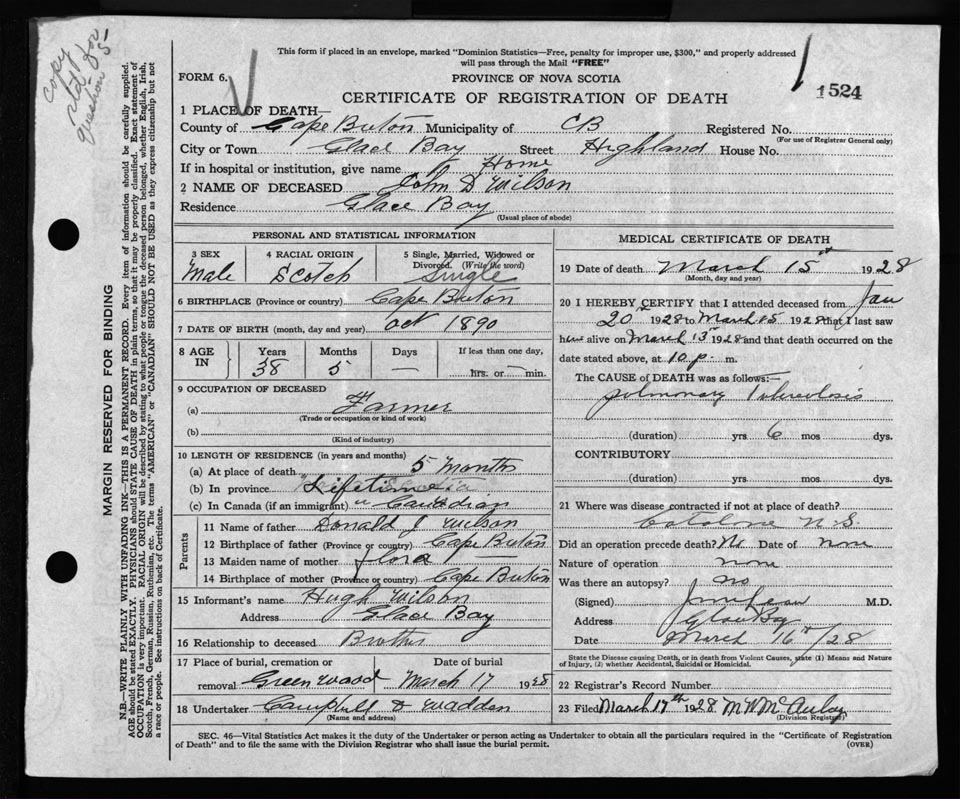 copy
ret'd for
question 5
This form if placed in an envelope, marked "Dominion Statistics—Free, penalty for improper use, $300," and properly addressed
will pass through the Mail "FREE"
FORM 6.
PROVINCE OF NOVA SCOTIA
CERTIFICATE OF REGISTRATION OF DEATH
1524
1 PLACE OF DEATH—
County of Cape Breton Municipality of CB Registered No.
(For use of Registrar General only)
City or Town Glace Bay Street Highland House No.
If in hospital or institution, give name Home
2 NAME OF DECEASED John D Wilson
Residence Glace Bay
(Usual place of abode)
PERSONAL AND STATISTICAL INFORMATION
3 SEX Male
4 RACIAL ORIGIN Scotch
5 Single, Married, Widowed or Divorced. (Write the word) Single
6 BIRTHPLACE (Province or country) Cape Breton
7 DATE OF BIRTH (month, day and year) Oct 1890
8 AGE IN Years 38 Months 5 Days — If less than one day, hrs. or — min.
9 OCCUPATION OF DECEASED
(a) Farmer
(Trade or occupation or kind of work)
(b)
(Kind of industry)
10 LENGTH OF RESIDENCE (in years and months)
(a) At place of death 5 Months
(b) In province Lifetime
(c) In Canada (if an immigrant) " Canadian
Parents
11 Name of father Donald J Wilson
12 Birthplace of father (Province or country) Cape Breton
13 Maiden name of mother Flora
14 Birthplace of mother (Province or country) Cape Breton
15 Informant's name Hugh Wilson
Address Glace Bay
16 Relationship to deceased Brother
17 Place of burial, cremation or removal Greenwood
Date of burial March 17 1928
18 Undertaker Campbell & Madden
(Name and address)
MEDICAL CERTIFICATE OF DEATH
19 Date of death March 15th 1928
(Month, day and year)
20 I HEREBY CERTIFY that I attended deceased from Jan
20" 1928 to March 15 1928 that I last saw
him alive on March 13" 1928 and that death occurred on the
date stated above, at 10 p. m.
The CAUSE of DEATH was as follows:—
pulmonary Tuberculosis
(duration) yrs 6 mos dys.
CONTRIBUTORY
(duration) yrs. mos. dys.
21 Where was disease contracted if not at place of death?
Catalone N.S.
Did an operation precede death? No Date of none
Nature of operation none
Was there an autopsy? no
(Signed) M.D.
Address Glace Bay
Date March 16th/28
State the Disease causing Death, or in death from Violent Causes, state (1) Means and Nature
of Injury, (2) whether Accidental, Suicidal or Homicidal.
22 Registrar's Record Number
23 Filed March 17th 1928 M W McAulay
(Division Registrar)
SEC. 46—Vital Statistics Act makes it the duty of the Undertaker or person acting as Undertaker to obtain all the particulars required in the "Certificate of Registration
of Death" and to file the same with the Division Registrar who shall issue the burial permit.
(OVER)
MARGIN RESERVED FOR BINDING
N.B.—WRITE PLAINLY WITH UNFADING INK—THIS IS A PERMANENT RECORD. Every item of information should be carefully supplied.
AGE should be stated EXACTLY. PHYSICIANS should STATE CAUSE OF DEATH in plain terms, so that it may be properly classified. Exact statement of
OCCUPATION is very important. RACIAL ORIGIN will be described by stating to what people or tongue the deceased person belonged, whether English, Irish,
Scotch, French, German, Russian, Ruthenian, etc. The terms "AMERICAN" or "CANADIAN" SHOULD NOT BE USED as they express citizenship but not
a race or people. See instructions on back of Certificate.